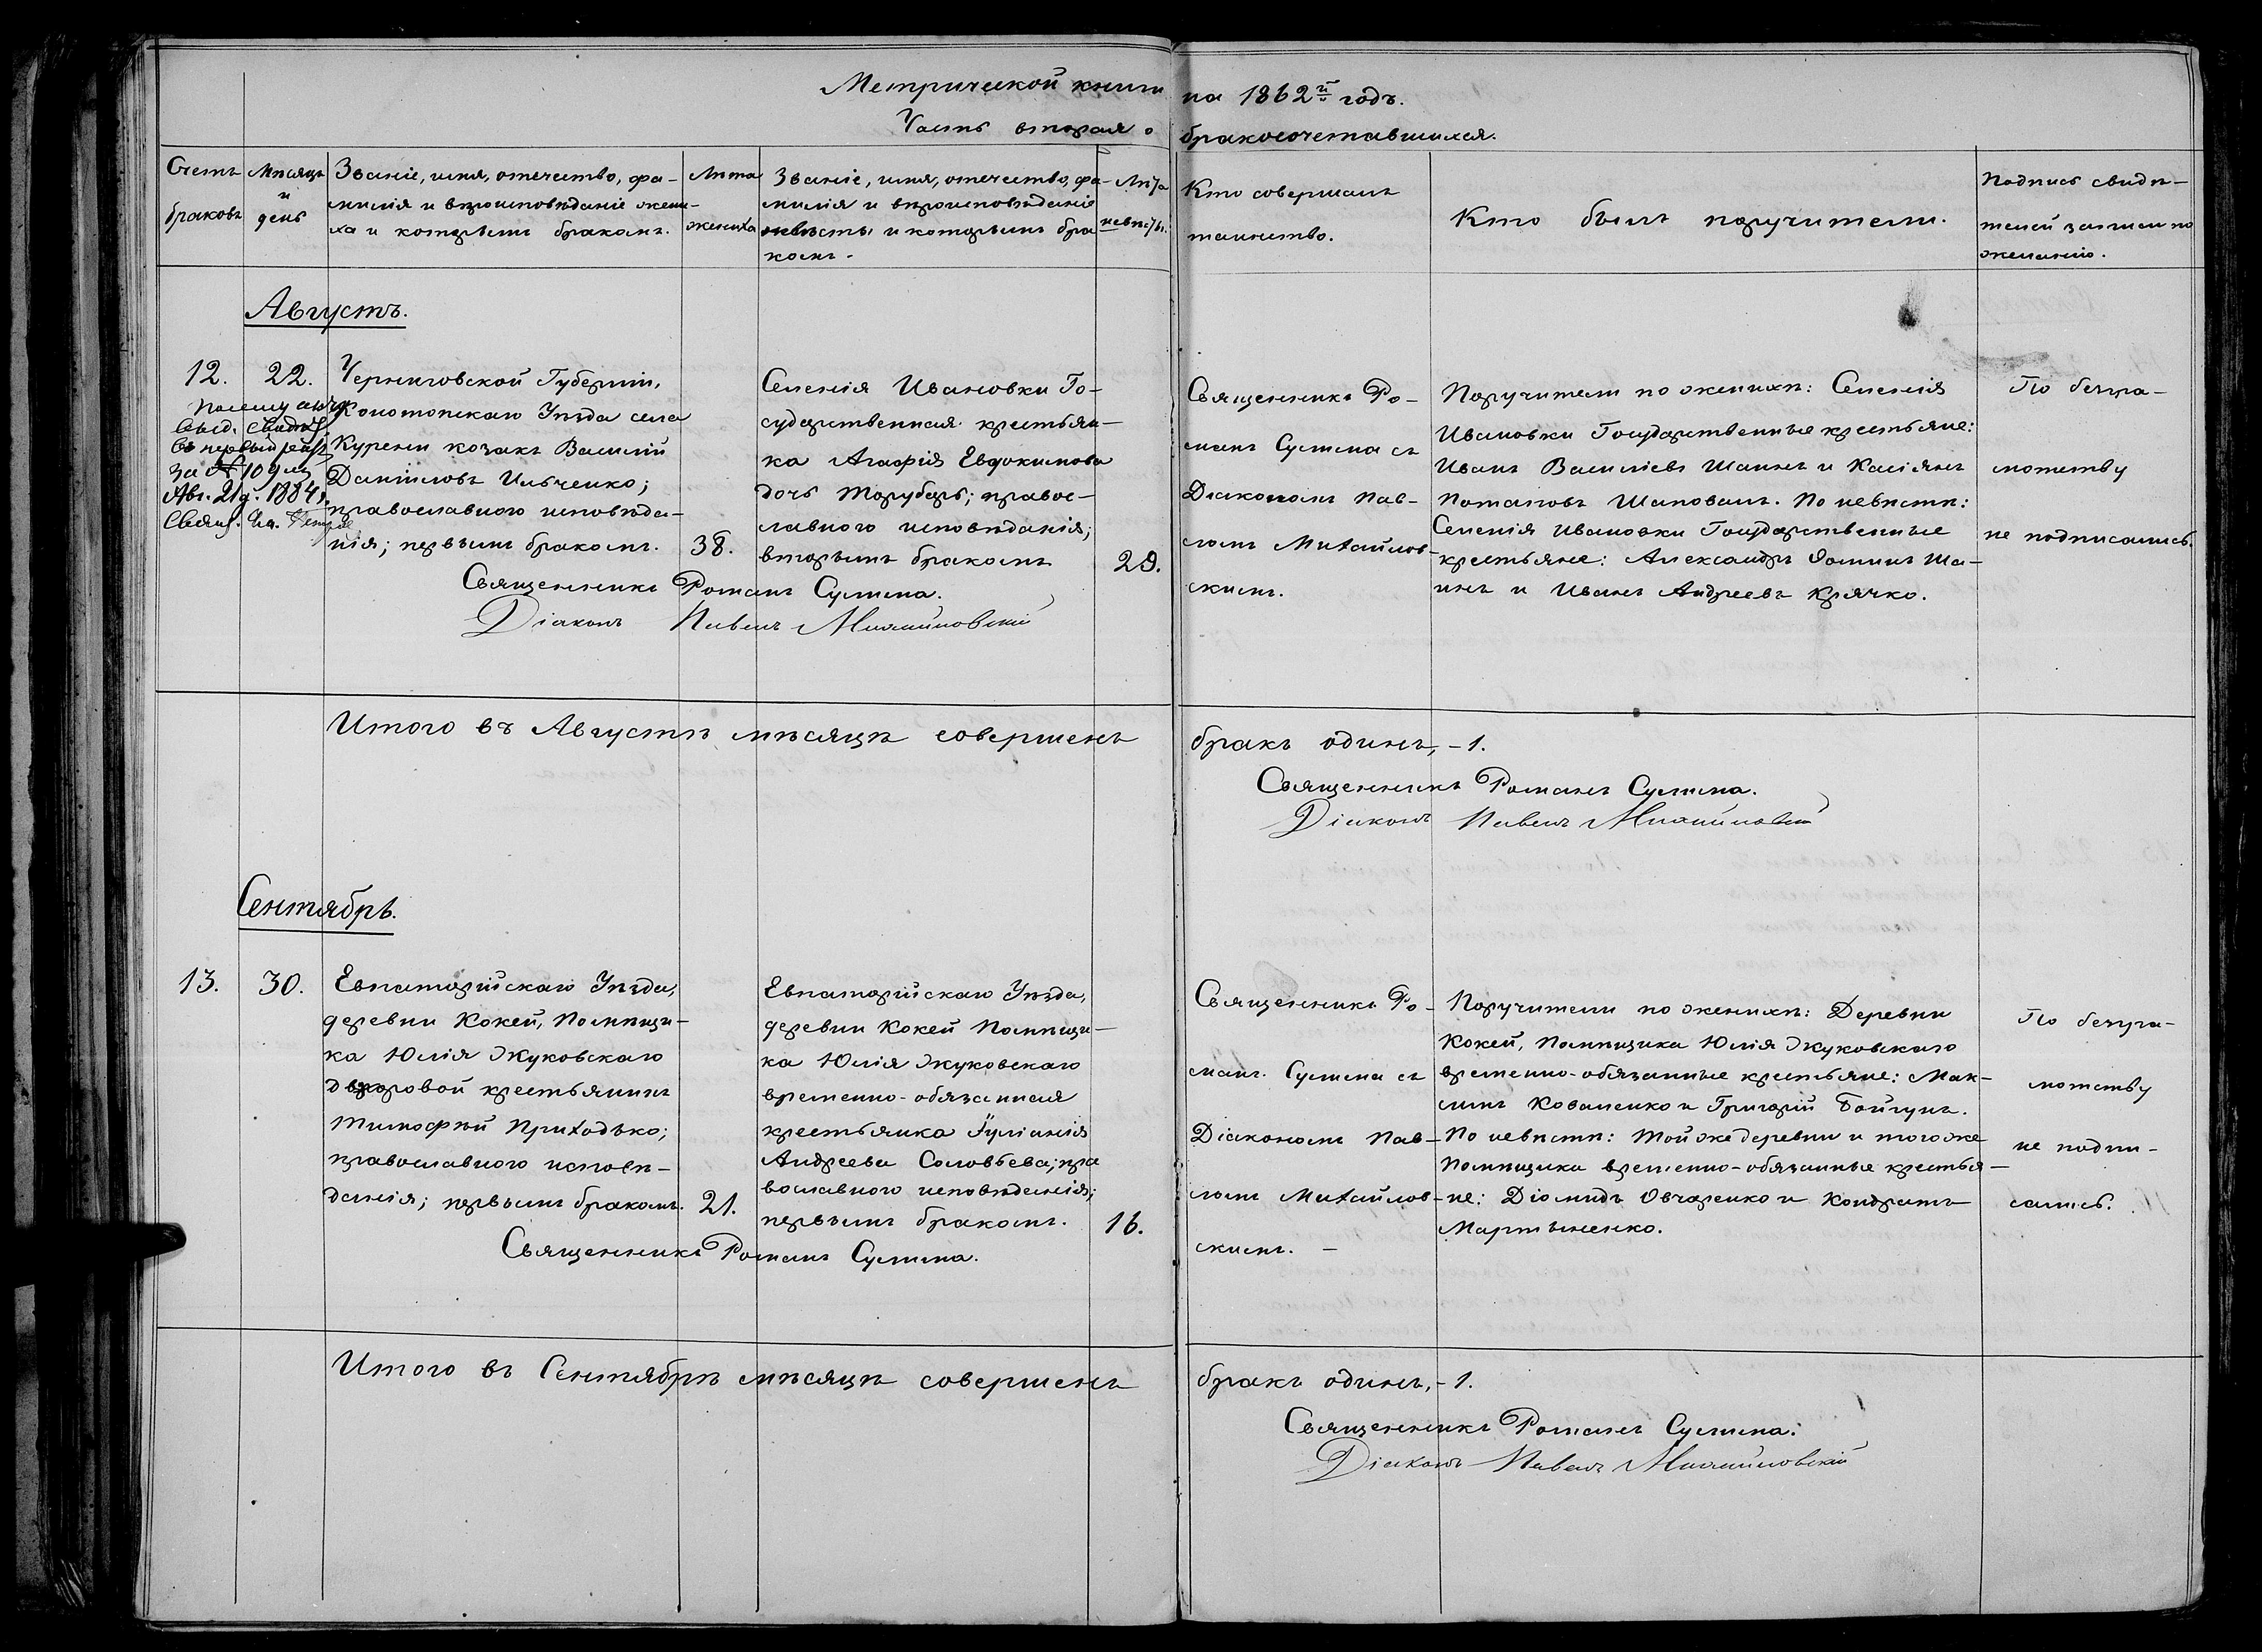 Метрической книги на 1862й годъ.
Часть вторая о бракосочетавшихся.
Счетъ
браковъ
Мѣсяцъ
и
день
Званіе, имя, отечество, фа-
милія и вѣроисповѣданіе жени-
ха и которымъ бракомъ.
Лѣта
жениха
Званіе, имя, отечество, фа-
милія и вѣроисповѣданіе
невѣсты и которымъ бра
комъ.
Лѣта
невѣсты.
Кто совершалъ
таинство.
Кто былъ поручители.
Подпись свидѣ-
телей записи по
желанію.
Августъ.
12.
22.
выд. свидѣт.
за № 10
Авг. 21 д. 1884 г.
Свящ.
Черниговской Губерніи,
Конотопскаго Уѣзда села
Курени козакъ Василій
Даниловъ Ильченко;
православного исповѣда-
нія; первымъ бракомъ.
38.
Селенія Ивановки Го-
сударственная крестьян-
ка Агафія Евдокимова
дочь Торубаръ; правос-
лавного исповѣданія;
вторымъ бракомъ
29.
Священникъ Ро-
манъ Сулима съ
Діакономъ Пав-
ломъ Михайлов-
скимъ.
Поручители по женихѣ: Селенія
Ивановки Государственные крестьяне:
Иванъ Василіевъ Шаинъ и Касіянъ
Потаповъ Шаповалъ. По невѣстѣ:
Селенія Ивановки Государственные
крестьяне: Александръ Фоминъ Ша-
инъ и Иванъ Андреевъ Крячко.
По безгра-
мотству
не подписались.
Священникъ Романъ Сулима.
Діаконъ Павелъ Михайловскій
Итого въ Августѣ мѣсяцѣ совершенъ бракъ одинъ, -1.
Священникъ Романъ Сулима.
Діаконъ Павелъ Михайловскій
Сентябрь.
13.
30.
Евпаторійскаго Уѣзда,
деревни Кокей, Помѣщи-
ка Юлія Жуковскаго
дворовой крестьянинъ
Тимофѣй Приходько;
православного исповѣ-
данія; первымъ бракомъ.
21.
Евпаторійскаго Уѣзда,
деревни Кокей Помѣщи-
ка Юлія Жуковскаго
временно-обязанная
крестьянка Іуліанія
Андреева Соловьева; пра
вославного исповѣданія;
первымъ бракомъ.
16.
Священникъ Ро-
манъ Сулима съ
Діакономъ Пав-
ломъ Михайлов-
скимъ. -
Поручители по женихѣ: Деревни
Кокей, Помѣщика Юлія Жуковскаго
временно-обязанные крестьяне: Мак-
симъ Коваленко и Григорій Бойгунъ.
По невѣстѣ: Той же деревни и того же
Помѣщика временно-обязанные крестья-
не: Діомидъ Овчаренко и Кондратъ
Мартыненко.
По безгра-
мотству
не подпи-
сались.
Священникъ Романъ Сулима.
Итого въ Сентябрѣ мѣсяцѣ совершенъ бракъ одинъ, -1.
Священникъ Романъ Сулима.
Діаконъ Павелъ Михайловскій